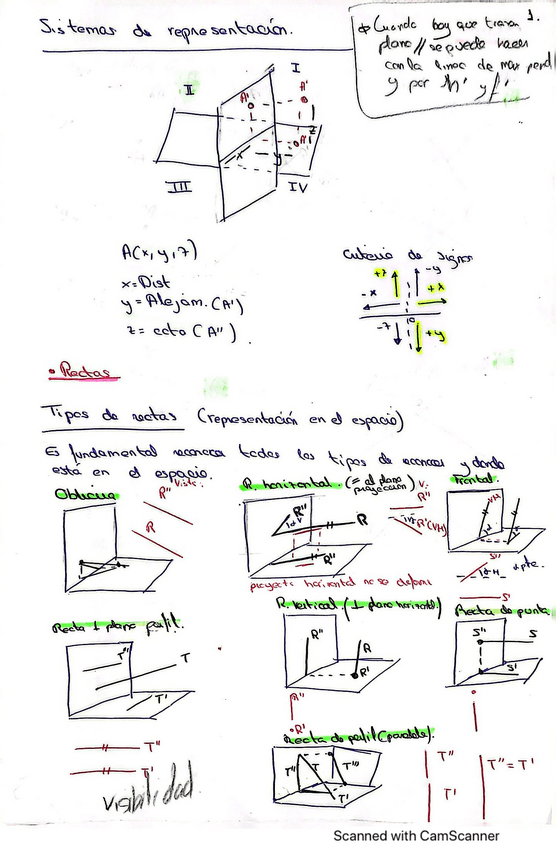 Sistemas de representación.
1.
* Cuando hay que trazar
plano // se puede hacer
con la linea de max pend
y por h' y f'
I
II
III
IV
A'
A''
A'
x
y
z
A(x, y, z)
x = Dist
y = Alejam. (A')
z = cota (A'')
Criterio de signos
+z
-y
-x
+x
-z
+y
• Rectas
Tipos de rectas (representación en el espacio)
Es fundamental reconocer todos los tipos de
está en el espacio.
y donde
Oblicua
R'' Vista.
R
R. horizontal. (= al plano proyección)
V.
R''
R'(VM)
R''
R
R''
proyecta horizontal no se deforma
frontal.
VM
S''
S'
Recta ⊥ plano perfil.
T''
T
T'
T''
T'
visibilidad
R. vertical (⊥ plano horizontal)
R''
R
R'
R''
R'
Recta de punta.
S''
S
S'
Recta de perfil (paralela).
T''
T
T'''
T'
T''
T'
T'' = T'
Scanned with CamScanner